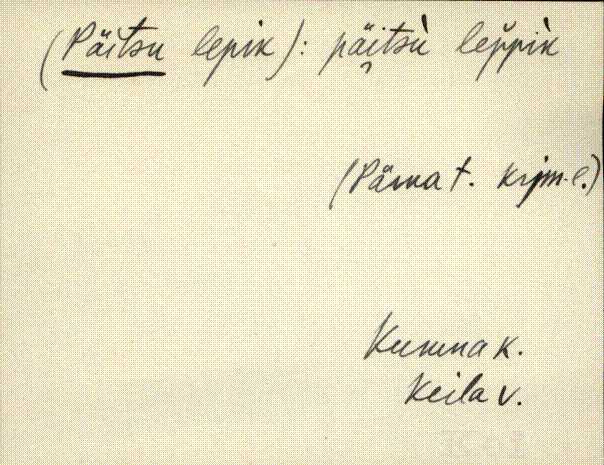 (Päitsu lepik): päi̯tsù lep̆pìk
(Pärna t. krjm-l.)
Kumna k.
Keila v.